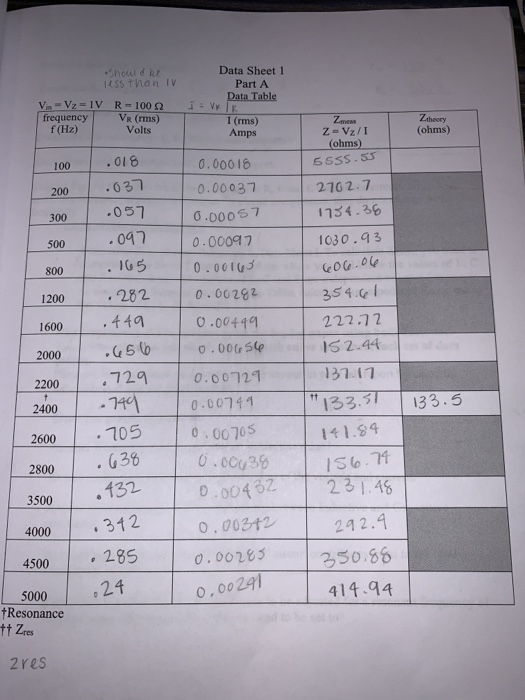 Data Sheet 1
•Should be
less than 1V
Part A
Data Table
Vin = VZ = 1V R = 100 Ω I = VR/R
frequency f (Hz) VR (rms) Volts I (rms) Amps Zmeas Z = VZ / I (ohms) Ztheory (ohms)
100 .018 0.00018 5555.55
200 .037 0.00037 2702.7
300 .057 0.00057 1754.38
500 .097 0.00097 1030.93
800 .165 0.00165 606.06
1200 .282 0.00282 354.61
1600 .449 0.00449 222.72
2000 .656 0.00656 152.44
2200 .729 0.00729 137.17
† 2400 .749 0.00749 †† 133.51 133.5
2600 .705 0.00705 141.84
2800 .638 0.00638 156.74
3500 .432 0.00432 231.48
4000 .342 0.00342 292.4
4500 .285 0.00285 350.88
5000 .24 0.00241 414.94
†Resonance
†† Zres
Zres